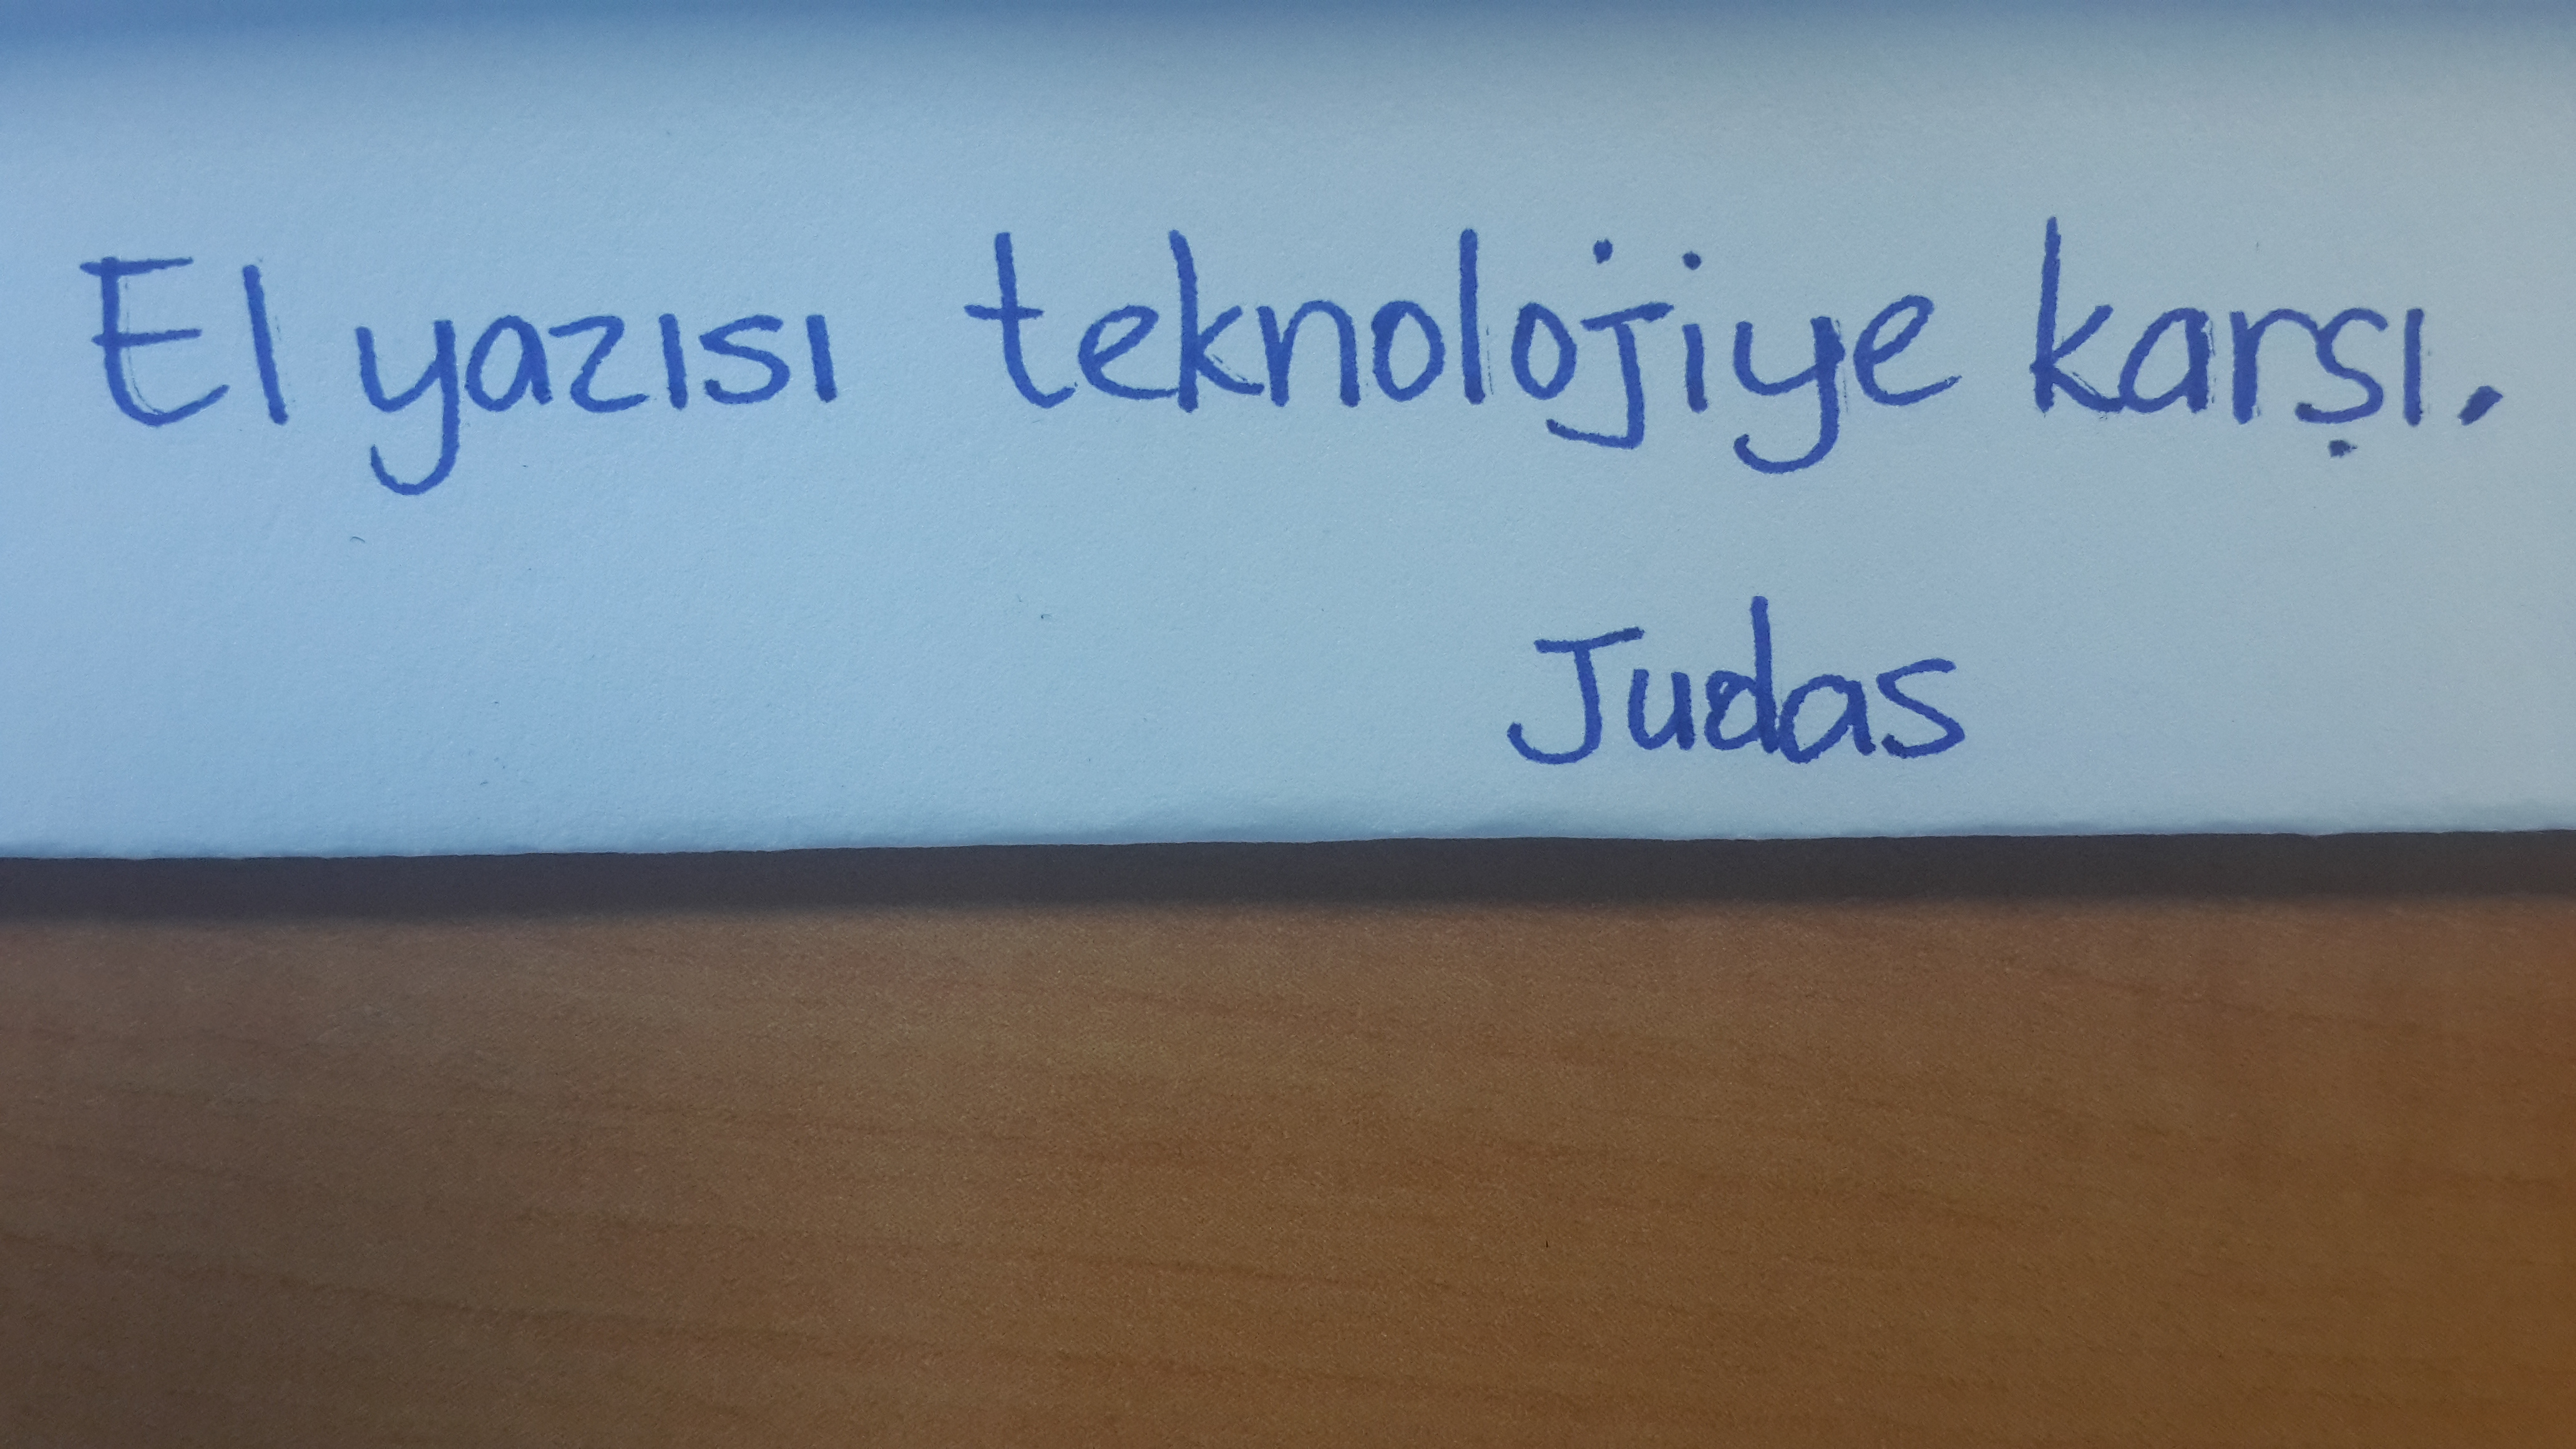 El yazısı teknolojiye karşı.
Judas